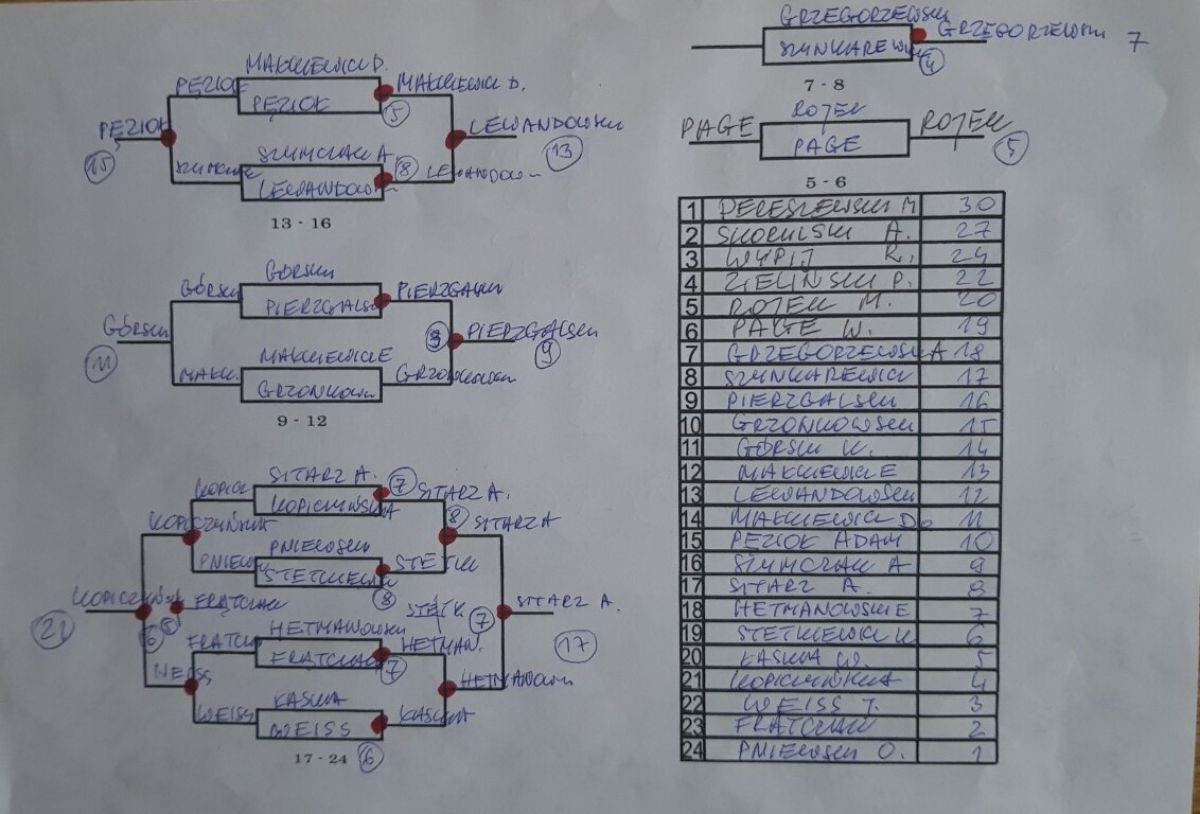 MAKIEWICZ D.
PĘZIOK
PĘZIOK
MAKIEWICZ D.
5
PĘZIOK
15
LEWANDOWSKI
13
SZYMCZAK A
LEWANDOW
8
13 - 16
GÓRSKI
GÓRSKI
PIERZGALSKI
PIERZGALSKI
GÓRSKI
11
3
PIERZGALSKI
9
MAKIEWICZ E
MAKK.
GRZONKOW
GRZONKOWSKI
9 - 12
SITARZ A.
KOPICZYŃSKA
7
SITARZ A.
KOPICZYŃSKA
8
SITARZ A
PNIEWSKI
PNIEW
STETKIEWICZ
8
STETKI
KOPICZYŃSKA
21
6
5
FRĄTCZAK
STETK.
7
SITARZ A.
17
HETMANOWSKI
FRĄTCZAK
7
HETMAN.
WEISS
HETMANOWSKI
KASKNA
WEISS
WEISS
KASKNA
17 - 24
6
GRZEGORZEWSKI
SZYNKAREWICZ
4
GRZEGORZEWSKI 7
7 - 8
PAGE
ROJEK
PAGE
ROJEK
5
5 - 6
1 PERESZEWSKI M 30
2 SKORULSKI A. 27
3 WYPIJ R. 24
4 ZIELIŃSKI P. 22
5 ROJEK M. 20
6 PAGE W. 19
7 GRZEGORZEWSKI A 18
8 SZYNKAREWICZ 17
9 PIERZGALSKI 16
10 GRZONKOWSKI 15
11 GÓRSKI K. 14
12 MAKIEWICZ E 13
13 LEWANDOWSKI 12
14 MAKIEWICZ D. 11
15 PĘZIOK ADAM 10
16 SZYMCZAK A 9
17 SITARZ A. 8
18 HETMANOWSKI E 7
19 STETKIEWICZ K 6
20 KASKNA W. 5
21 KOPICZYŃSKA 4
22 WEISS T. 3
23 FRĄTCZAK 2
24 PNIEWSKI O. 1